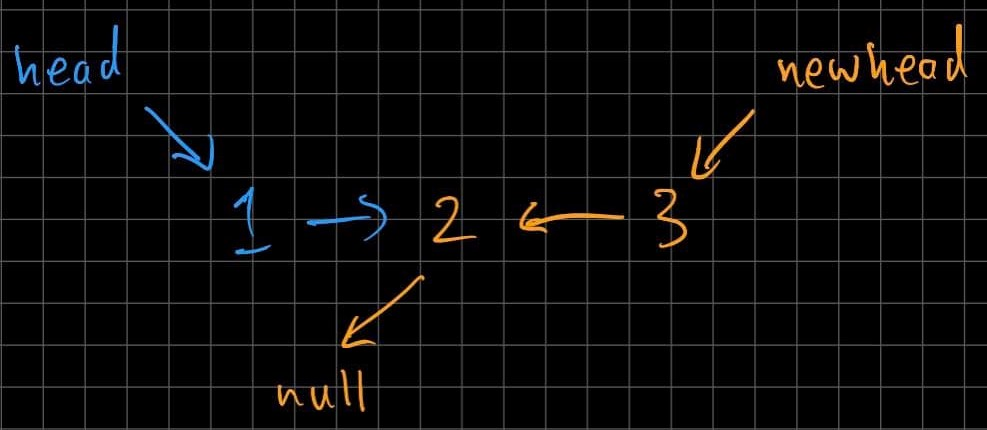 head newhead
1 → 2 ← 3
null